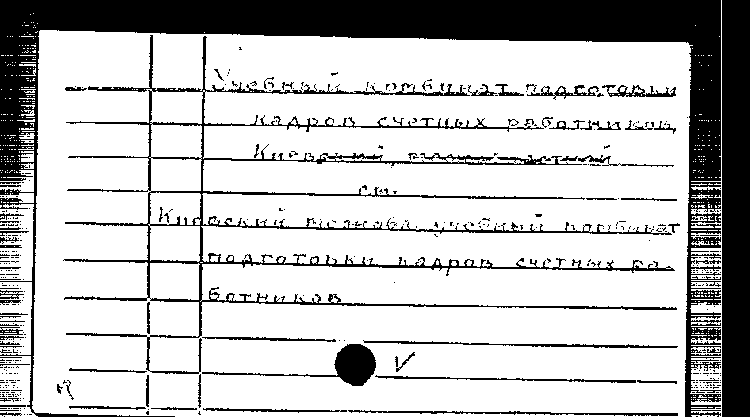 Учебный комбинат подготовки
кадров счетных работников,
Киев
см.
Киевский учебный комбинат
подготовки кадров счетных ра-
ботников